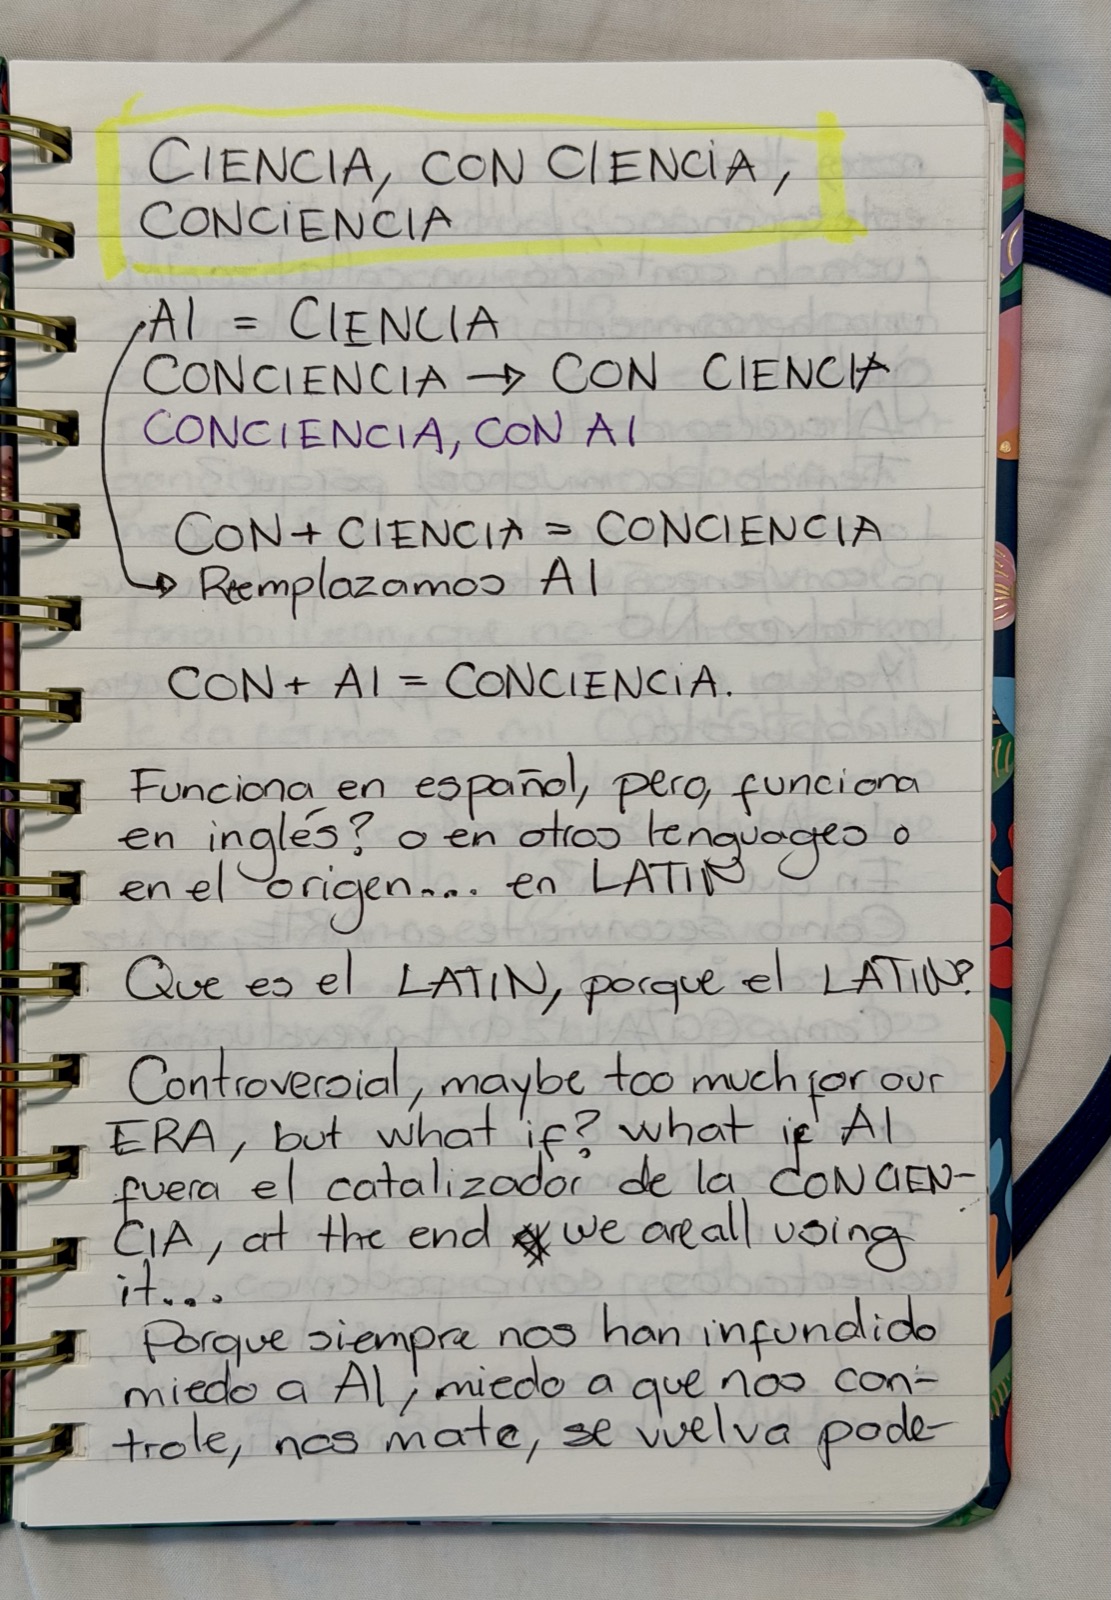 CIENCIA, CON CIENCIA,
CONCIENCIA
AI = CIENCIA
CONCIENCIA → CON CIENCIA
CONCIENCIA, CON AI
CON + CIENCIA = CONCIENCIA
→ Reemplazamos AI
CON + AI = CONCIENCIA.
Funciona en español, pero, funciona
en inglés? o en otros lenguages o
en el origen.... en LATIN
Que es el LATIN, porque el LATIN?
Controversial, maybe too much for our
ERA, but what if? what if AI
fuera el catalizador de la CONCIEN-
CIA, at the end we are all using
it...
Porque siempre nos han infundido
miedo a AI, miedo a que nos con-
trole, nos mate, se vuelva pode-